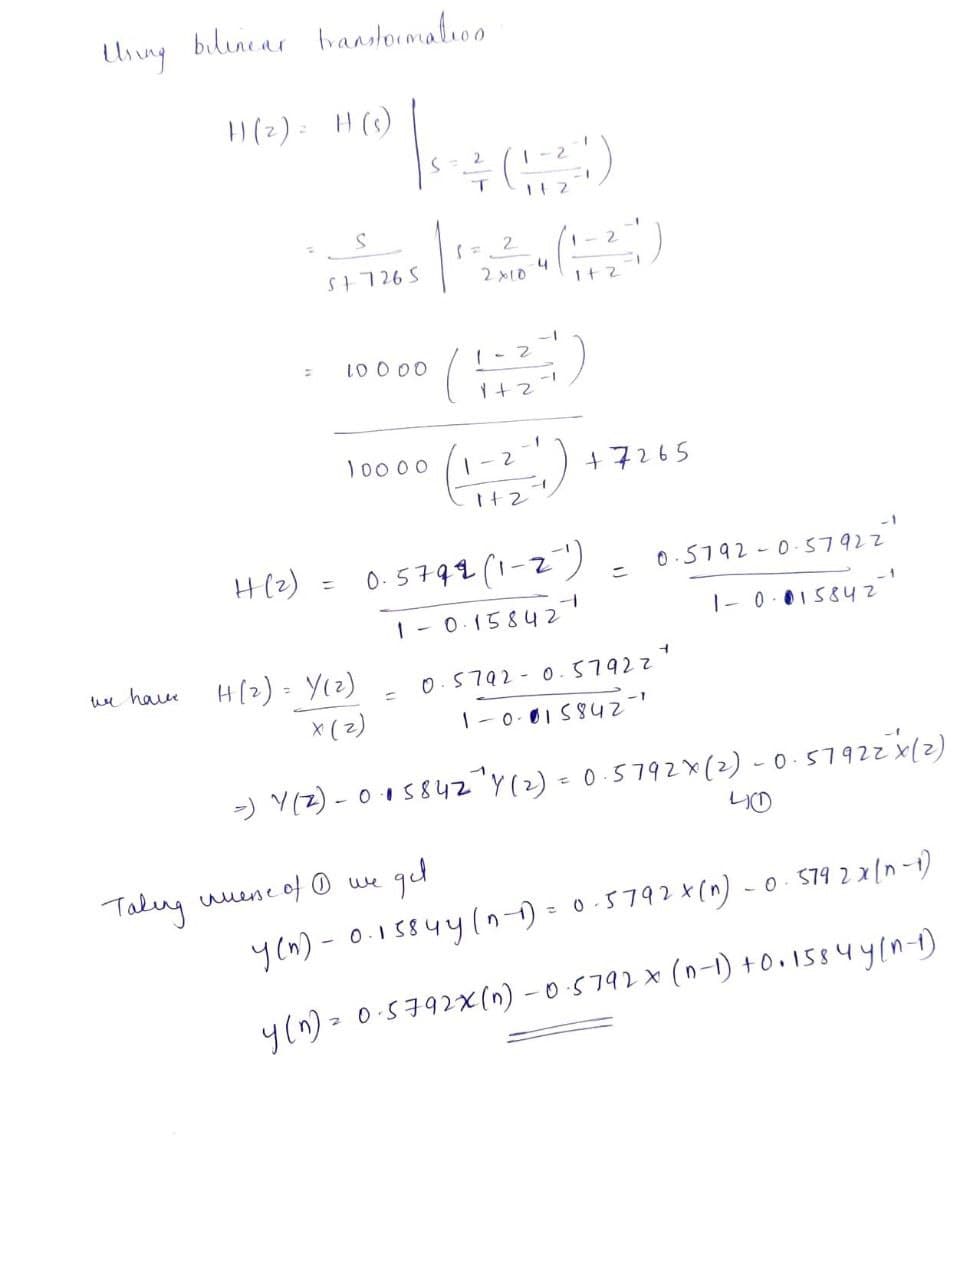 Using bilinear transformation
H(z) = H(s) | s = 2/T ( (1 - z^-1) / (1 + z^-1) )
= s / (s + 7265) | s = 2 / (2×10^-4) ( (1 - z^-1) / (1 + z^-1) )
= 10000 ( (1 - z^-1) / (1 + z^-1) )
10000 ( (1 - z^-1) / (1 + z^-1) ) + 7265
H(z) = 0.5792 (1 - z^-1) / (1 - 0.1584z^-1) = (0.5792 - 0.5792z^-1) / (1 - 0.01584z^-1)
we have H(z) = Y(z) / X(z) = (0.5792 - 0.5792z^-1) / (1 - 0.01584z^-1)
=> Y(z) - 0.1584z^-1 Y(z) = 0.5792 X(z) - 0.5792z^-1 X(z)
↳①
Taking inverse of ① we get
y(n) - 0.1584y(n-1) = 0.5792x(n) - 0.5792x(n-1)
y(n) = 0.5792x(n) - 0.5792x(n-1) + 0.1584y(n-1)